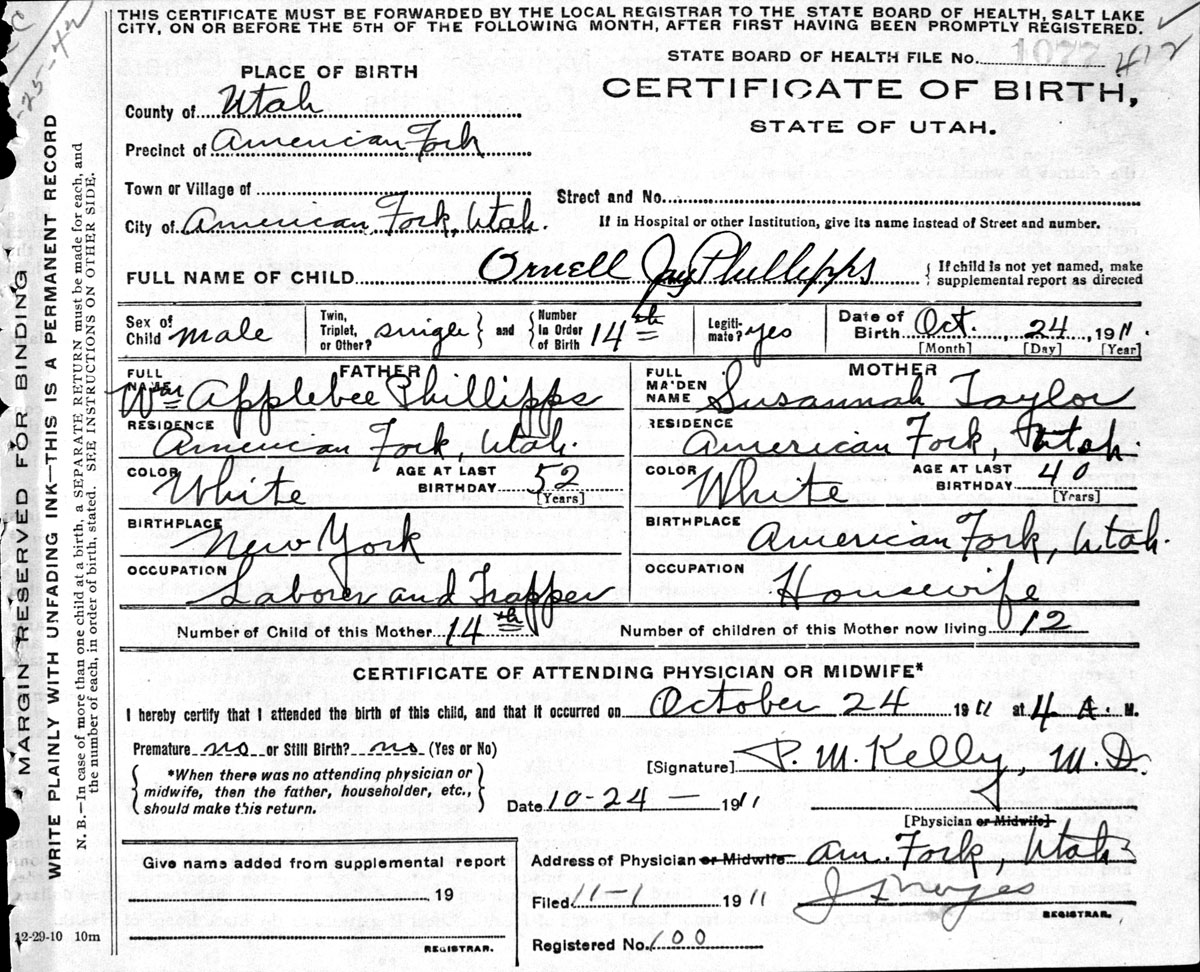 THIS CERTIFICATE MUST BE FORWARDED BY THE LOCAL REGISTRAR TO THE STATE BOARD OF HEALTH, SALT LAKE
CITY, ON OR BEFORE THE 5TH OF THE FOLLOWING MONTH, AFTER FIRST HAVING BEEN PROMPTLY REGISTERED.
STATE BOARD OF HEALTH FILE No. 1077 412
CERTIFICATE OF BIRTH,
STATE OF UTAH.
PLACE OF BIRTH
County of Utah
Precinct of American Fork
Town or Village of
Street and No.
City of American Fork, Utah.
If in Hospital or other Institution, give its name instead of Street and number.
FULL NAME OF CHILD Ornell Jay Phillipps
{ If child is not yet named, make
supplemental report as directed
Sex of Child male
Twin, Triplet, or Other? single } and { Number in Order of Birth 14th
Legitimate? yes
Date of Birth Oct. 24, 1911.
[Month] [Day] [Year]
FATHER
FULL NAME Wm Applebee Phillipps
RESIDENCE American Fork, Utah.
COLOR White AGE AT LAST BIRTHDAY 52 [Years]
BIRTHPLACE New York
OCCUPATION Laborer and Trapper
MOTHER
FULL MAIDEN NAME Susannah Taylor
RESIDENCE American Fork, Utah.
COLOR White AGE AT LAST BIRTHDAY 40 [Years]
BIRTHPLACE American Fork, Utah.
OCCUPATION Housewife
Number of Child of this Mother 14th Number of children of this Mother now living 12
CERTIFICATE OF ATTENDING PHYSICIAN OR MIDWIFE*
I hereby certify that I attended the birth of this child, and that it occurred on October 24 1911 at 4 A. M.
Premature no or Still Birth? no (Yes or No)
{ *When there was no attending physician or
midwife, then the father, householder, etc.,
should make this return. }
[Signature] P. M. Kelly, M.D.
Date 10-24- 1911
[Physician or Midwife]
Address of Physician or Midwife Am. Fork, Utah
Filed 11-1 1911
REGISTRAR.
Registered No. 100
Give name added from supplemental report
19
REGISTRAR.
12-29-10 10m
MARGIN RESERVED FOR BINDING
WRITE PLAINLY WITH UNFADING INK—THIS IS A PERMANENT RECORD
N. B.—In case of more than one child at a birth, a SEPARATE RETURN must be made for each, and
the number of each, in order of birth, stated. SEE INSTRUCTIONS ON OTHER SIDE.